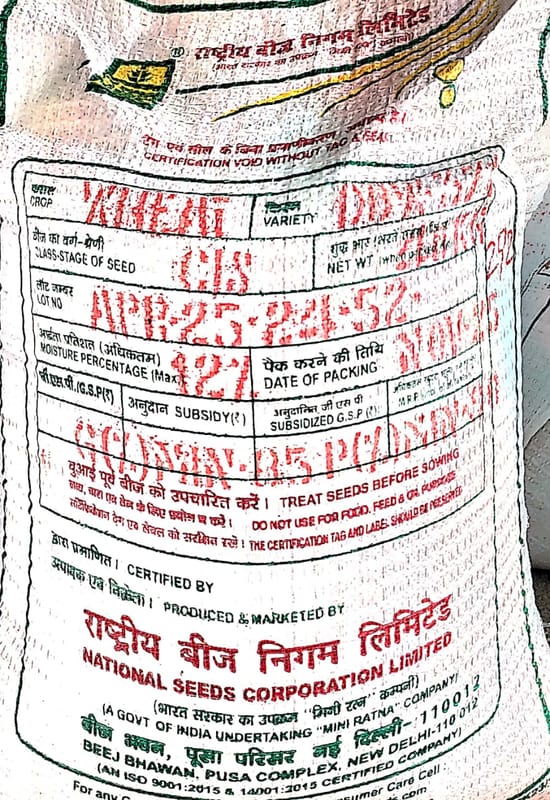 ® राष्ट्रीय बीज निगम लिमिटेड
(भारत सरकार का उपक्रम "मिनी रत्न" कम्पनी)
टैग एवं सील के बिना प्रमाणीकरण अमान्य है।
CERTIFICATION VOID WITHOUT TAG & SEAL
फसल
CROP
WHEAT
किस्म
VARIETY
बीज का वर्ग-श्रेणी
CLASS-STAGE OF SEED
C/S
शुद्ध भार
NET WT.
लॉट नम्बर
LOT NO
APR-25-24-52-
292
आर्द्रता प्रतिशत (अधिकतम)
MOISTURE PERCENTAGE (Max)
12%
पैक करने की तिथि
DATE OF PACKING
जी.एस.पी./G.S.P(₹)
अनुदान SUBSIDY(₹)
अनुदानित जी एस पी
SUBSIDIZED G.S.P (₹)
बुआई पूर्व बीज को उपचारित करें। TREAT SEEDS BEFORE SOWING
खाद्य, चारा एवं तेल के लिए प्रयोग न करें। DO NOT USE FOR FOOD, FEED & OIL PURPOSE
सर्टिफिकेशन टैग एवं लेबल को संरक्षित रखें। THE CERTIFICATION TAG AND LABEL SHOULD BE PRESERVED
द्वारा प्रमाणित। CERTIFIED BY
उत्पादक एवं विक्रेता। PRODUCED & MARKETED BY
राष्ट्रीय बीज निगम लिमिटेड
NATIONAL SEEDS CORPORATION LIMITED
(भारत सरकार का उपक्रम "मिनी रत्न" कम्पनी)
(A GOVT OF INDIA UNDERTAKING "MINI RATNA" COMPANY)
बीज भवन, पूसा परिसर नई दिल्ली-110012
BEEJ BHAWAN, PUSA COMPLEX, NEW DELHI-110 012
(AN ISO 9001:2015 & 14001:2015 CERTIFIED COMPANY)
For any
Consumer Care Cell :